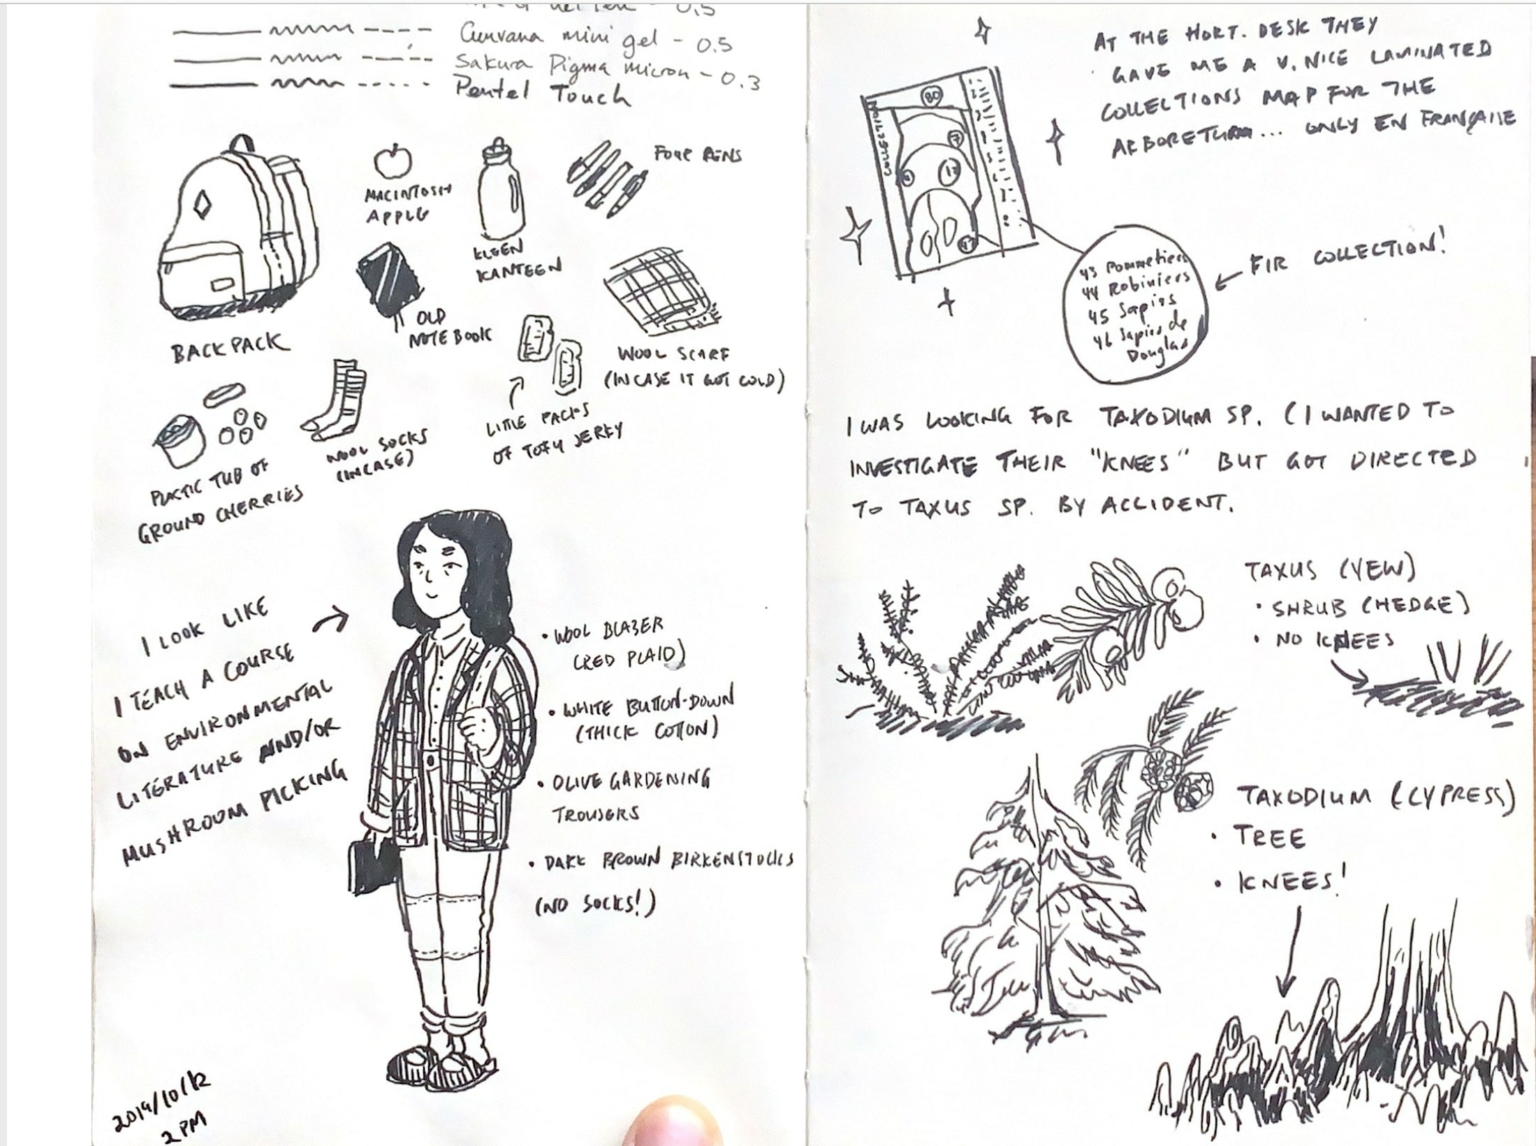 0.5
Cunvana mini gel - 0.5
Sakura Pigma micron - 0.3
Pentel Touch
MACINTOSH
APPLE
KLEEN
KANTEEN
FOUR PENS
BACKPACK
OLD
NOTEBOOK
WOOL SCARF
(INCASE IT GOT COLD)
PLASTIC TUB OF
GROUND CHERRIES
WOOL SOCKS
(INCASE)
LITTLE PACKS
OF TOFU JERKY
I LOOK LIKE
I TEACH A COURSE
ON ENVIRONMENTAL
LITERATURE AND/OR
MUSHROOM PICKING
• WOOL BLAZER
(RED PLAID)
• WHITE BUTTON-DOWN
(THICK COTTON)
• OLIVE GARDENING
TROUSERS
• DARK BROWN BIRKENSTOCKS
(NO SOCKS!)
2019/10/12
2 PM
AT THE HORT. DESK THEY
GAVE ME A V. NICE LAMINATED
COLLECTIONS MAP FOR THE
ARBORETUM... ONLY EN FRANÇAISE
80
7
43 Pommetiers
44 Robiniers
45 Sapins
46 Sapins de
Douglas
FIR COLLECTION!
I WAS LOOKING FOR TAXODIUM SP. (I WANTED TO
INVESTIGATE THEIR "KNEES" BUT GOT DIRECTED
TO TAXUS SP. BY ACCIDENT.
TAXUS (YEW)
• SHRUB (HEDGE)
• NO KNEES
TAXODIUM (CYPRESS)
• TREE
• KNEES!